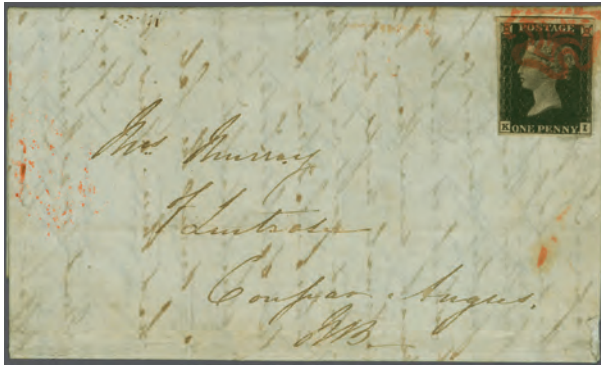 POSTAGE
ONE PENNY
K I
Mrs Murray
of Lintrose
Coupar Angus.
N.B.